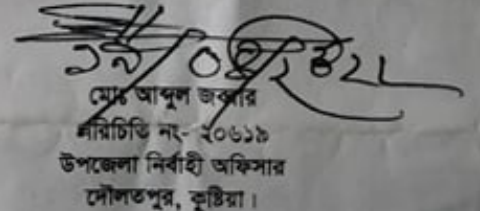 মোঃ আব্দুল জব্বার
পরিচিতি নং- ২০৬১৯
উপজেলা নির্বাহী অফিসার
দৌলতপুর, কুষ্টিয়া।